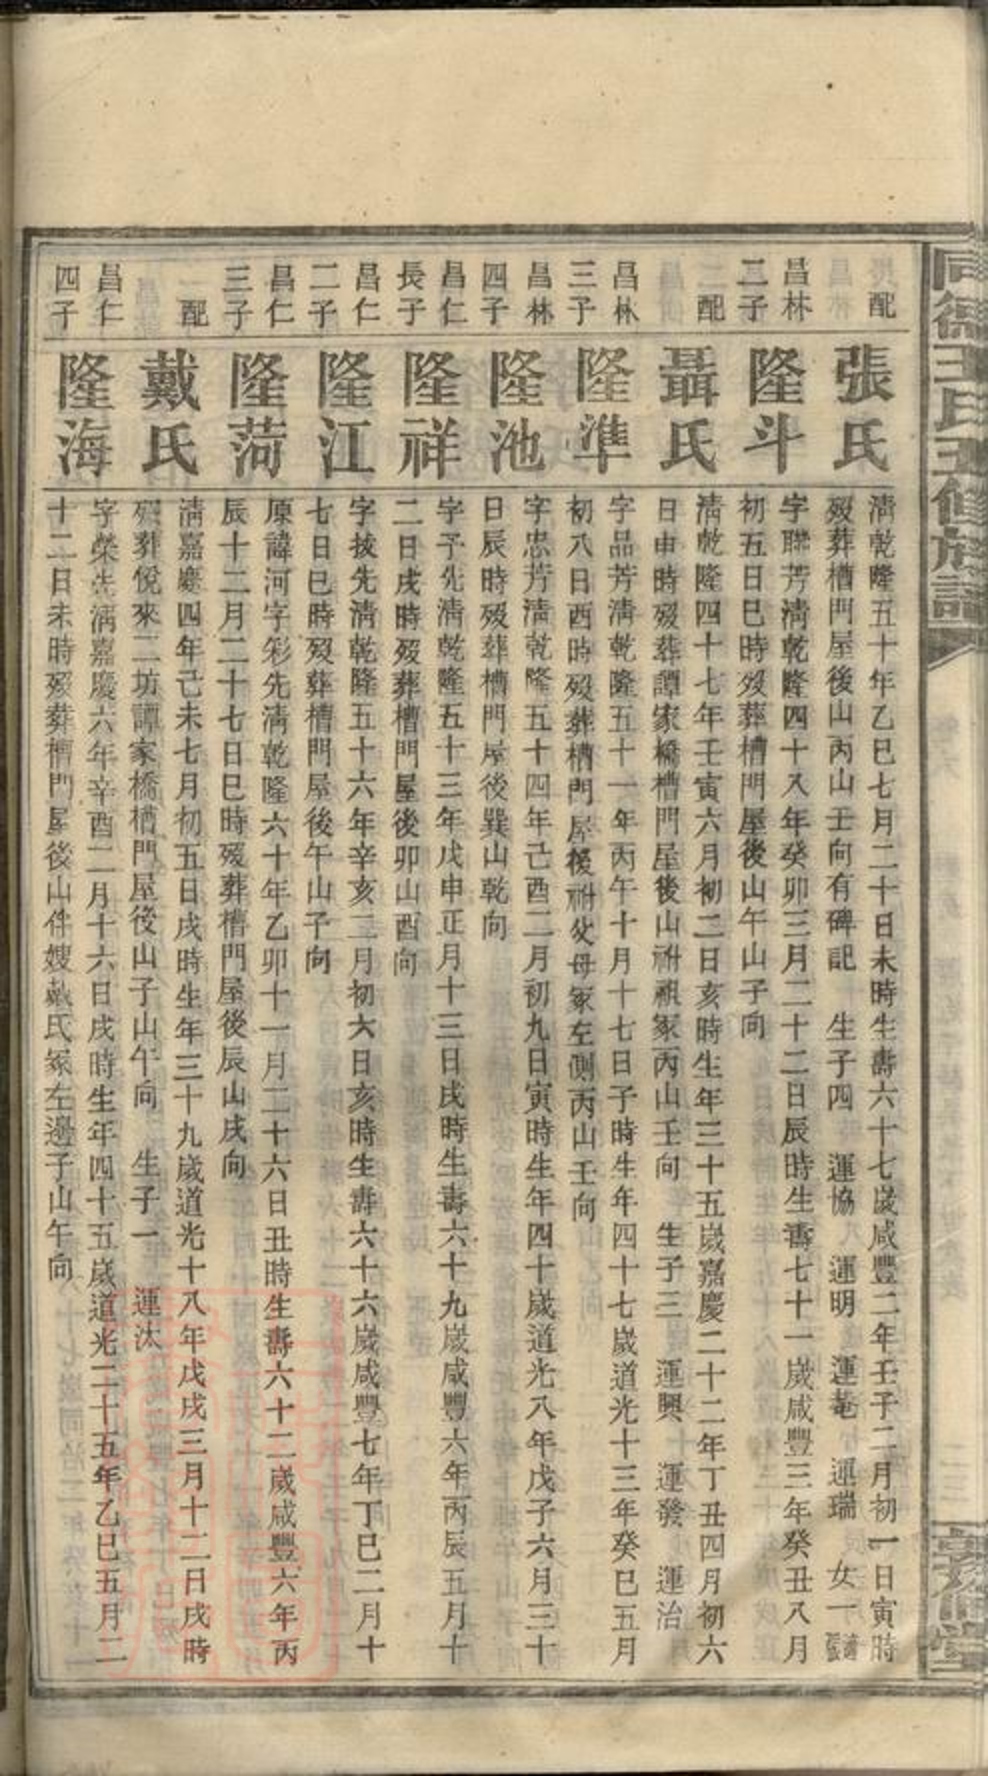 同德王氏五修族譜
配
張氏
清乾隆五十年乙巳七月二十日未時生壽六十七歲咸豐二年壬子二月初一日寅時
歿葬槽門屋後山丙山壬向有碑記 生子四 運協 運明 運菴 運瑞 女一適張
昌林
二子
隆斗
字聯芳清乾隆四十八年癸卯三月二十二日辰時生壽七十一歲咸豐三年癸丑八月
初五日巳時歿葬槽門屋後山午山子向
配
聶氏
清乾隆四十七年壬寅六月初二日亥時生年三十五歲嘉慶二十二年丁丑四月初六
日申時歿葬譚家橋槽門屋後山祔祖冢丙山壬向 生子三 運興 運發 運治
昌林
三子
隆準
字品芳清乾隆五十一年丙午十月十七日子時生年四十七歲道光十三年癸巳五月
初八日酉時歿葬槽門屋後祔父母冢左側丙山壬向
昌林
四子
隆池
字忠芳清乾隆五十四年己酉二月初九日寅時生年四十歲道光八年戊子六月三十
日辰時歿葬槽門屋後巽山乾向
昌仁
長子
隆祥
字予先清乾隆五十三年戊申正月十三日戌時生壽六十九歲咸豐六年丙辰五月十
二日戌時歿葬槽門屋後卯山酉向
昌仁
二子
隆江
字拔先清乾隆五十六年辛亥三月初六日亥時生壽六十六歲咸豐七年丁巳二月十
七日巳時歿葬槽門屋後午山子向
昌仁
三子
隆菏
原諱河字彩先清乾隆六十年乙卯十一月二十六日丑時生壽六十二歲咸豐六年丙
辰十二月二十七日巳時歿葬槽門屋後辰山戌向
配
戴氏
清嘉慶四年己未七月初五日戌時生年三十九歲道光十八年戊戌三月十二日戌時
歿葬悅來二坊譚家橋槽門屋後山子山午向 生子一 運汰
昌仁
四子
隆海
字榮先清嘉慶六年辛酉二月十六日戌時生年四十五歲道光二十五年乙巳五月二
十二日未時歿葬槽門屋後山伴嫂戴氏冢左邊子山午向